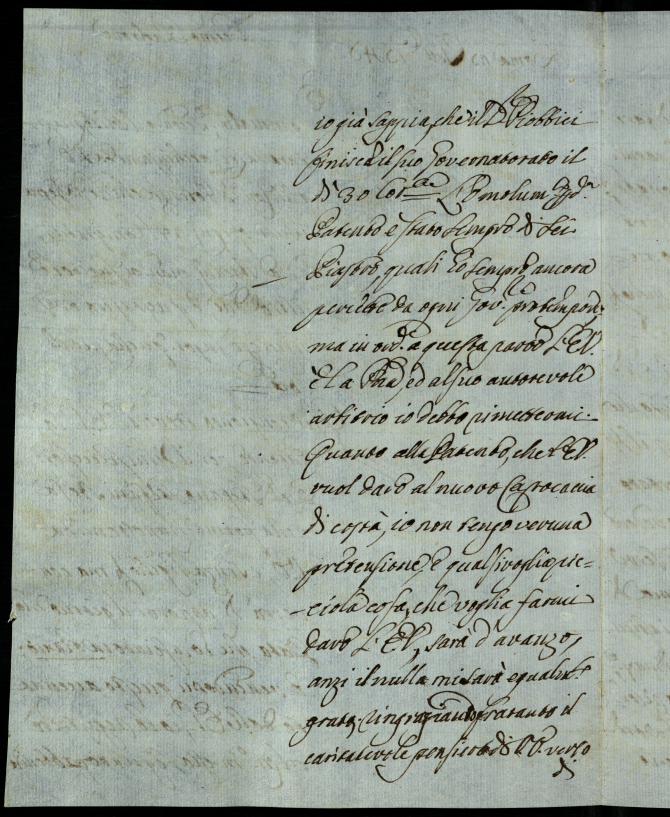 io già sappia, che il D. Piobbici
finisca il suo Governatorato il
dì 30 Cor.te L'Emolum.
Patente è stato sempre di sei
Piastre, quali Io sempre ancora
da ogni Gov.re pro tempore,
ma in ord.e a questa parte V. E.
è la Pnā, ed al suo autorevole
arbitrio io debbo rimettermi.
Quanto alla Patente, che V. E.
vuol dare al nuovo Capocaccia
di costà, io non tengo veruna
pretensione, e qualsivoglia pic=
ciola cosa, che voglia farmi
dare V. E., sarà d'avanzo,
anzi il nulla mi sarà egualm.e
grato, ringraziando pertanto il
caritatevole pensiero di V. E. verso
di